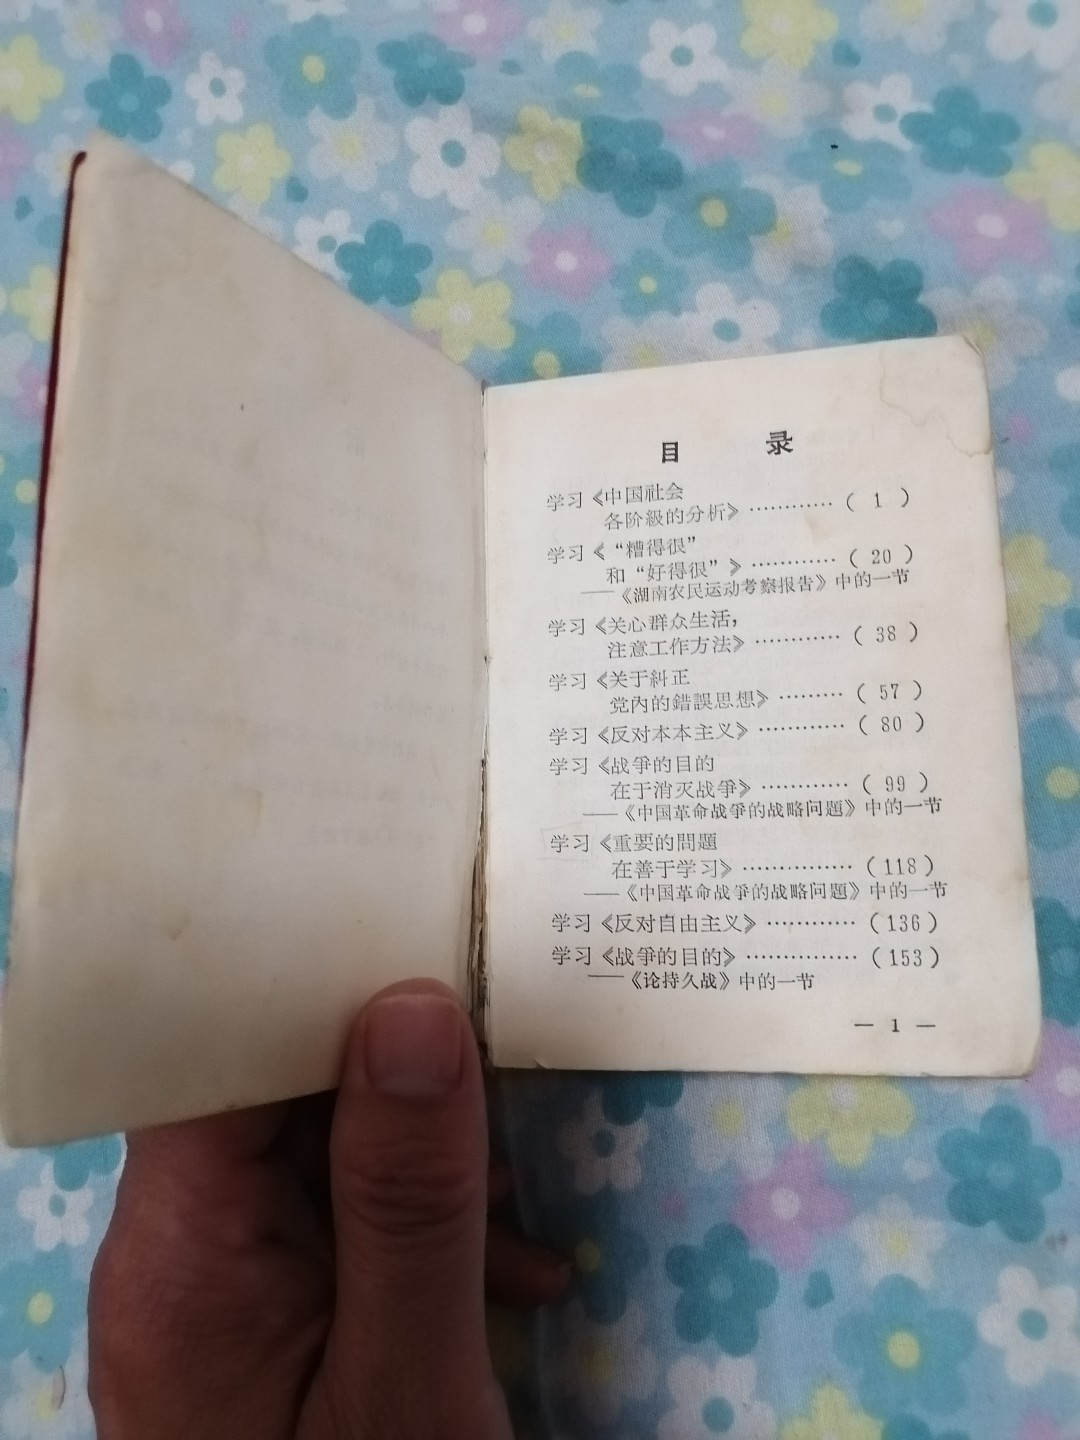 目 录
学习《中国社会
各阶級的分析》…………( 1 )
学习《“糟得很”
和“好得很”》…………( 20 )
——《湖南农民运动考察报告》中的一节
学习《关心群众生活，
注意工作方法》…………( 38 )
学习《关于糾正
党內的錯誤思想》………( 57 )
学习《反对本本主义》…………( 80 )
学习《战爭的目的
在于消灭战爭》…………( 99 )
——《中国革命战爭的战略问題》中的一节
学习《重要的問題
在善于学习》……………(118)
——《中国革命战爭的战略问題》中的一节
学习《反对自由主义》…………(136)
学习《战爭的目的》……………(153)
——《论持久战》中的一节
— 1 —